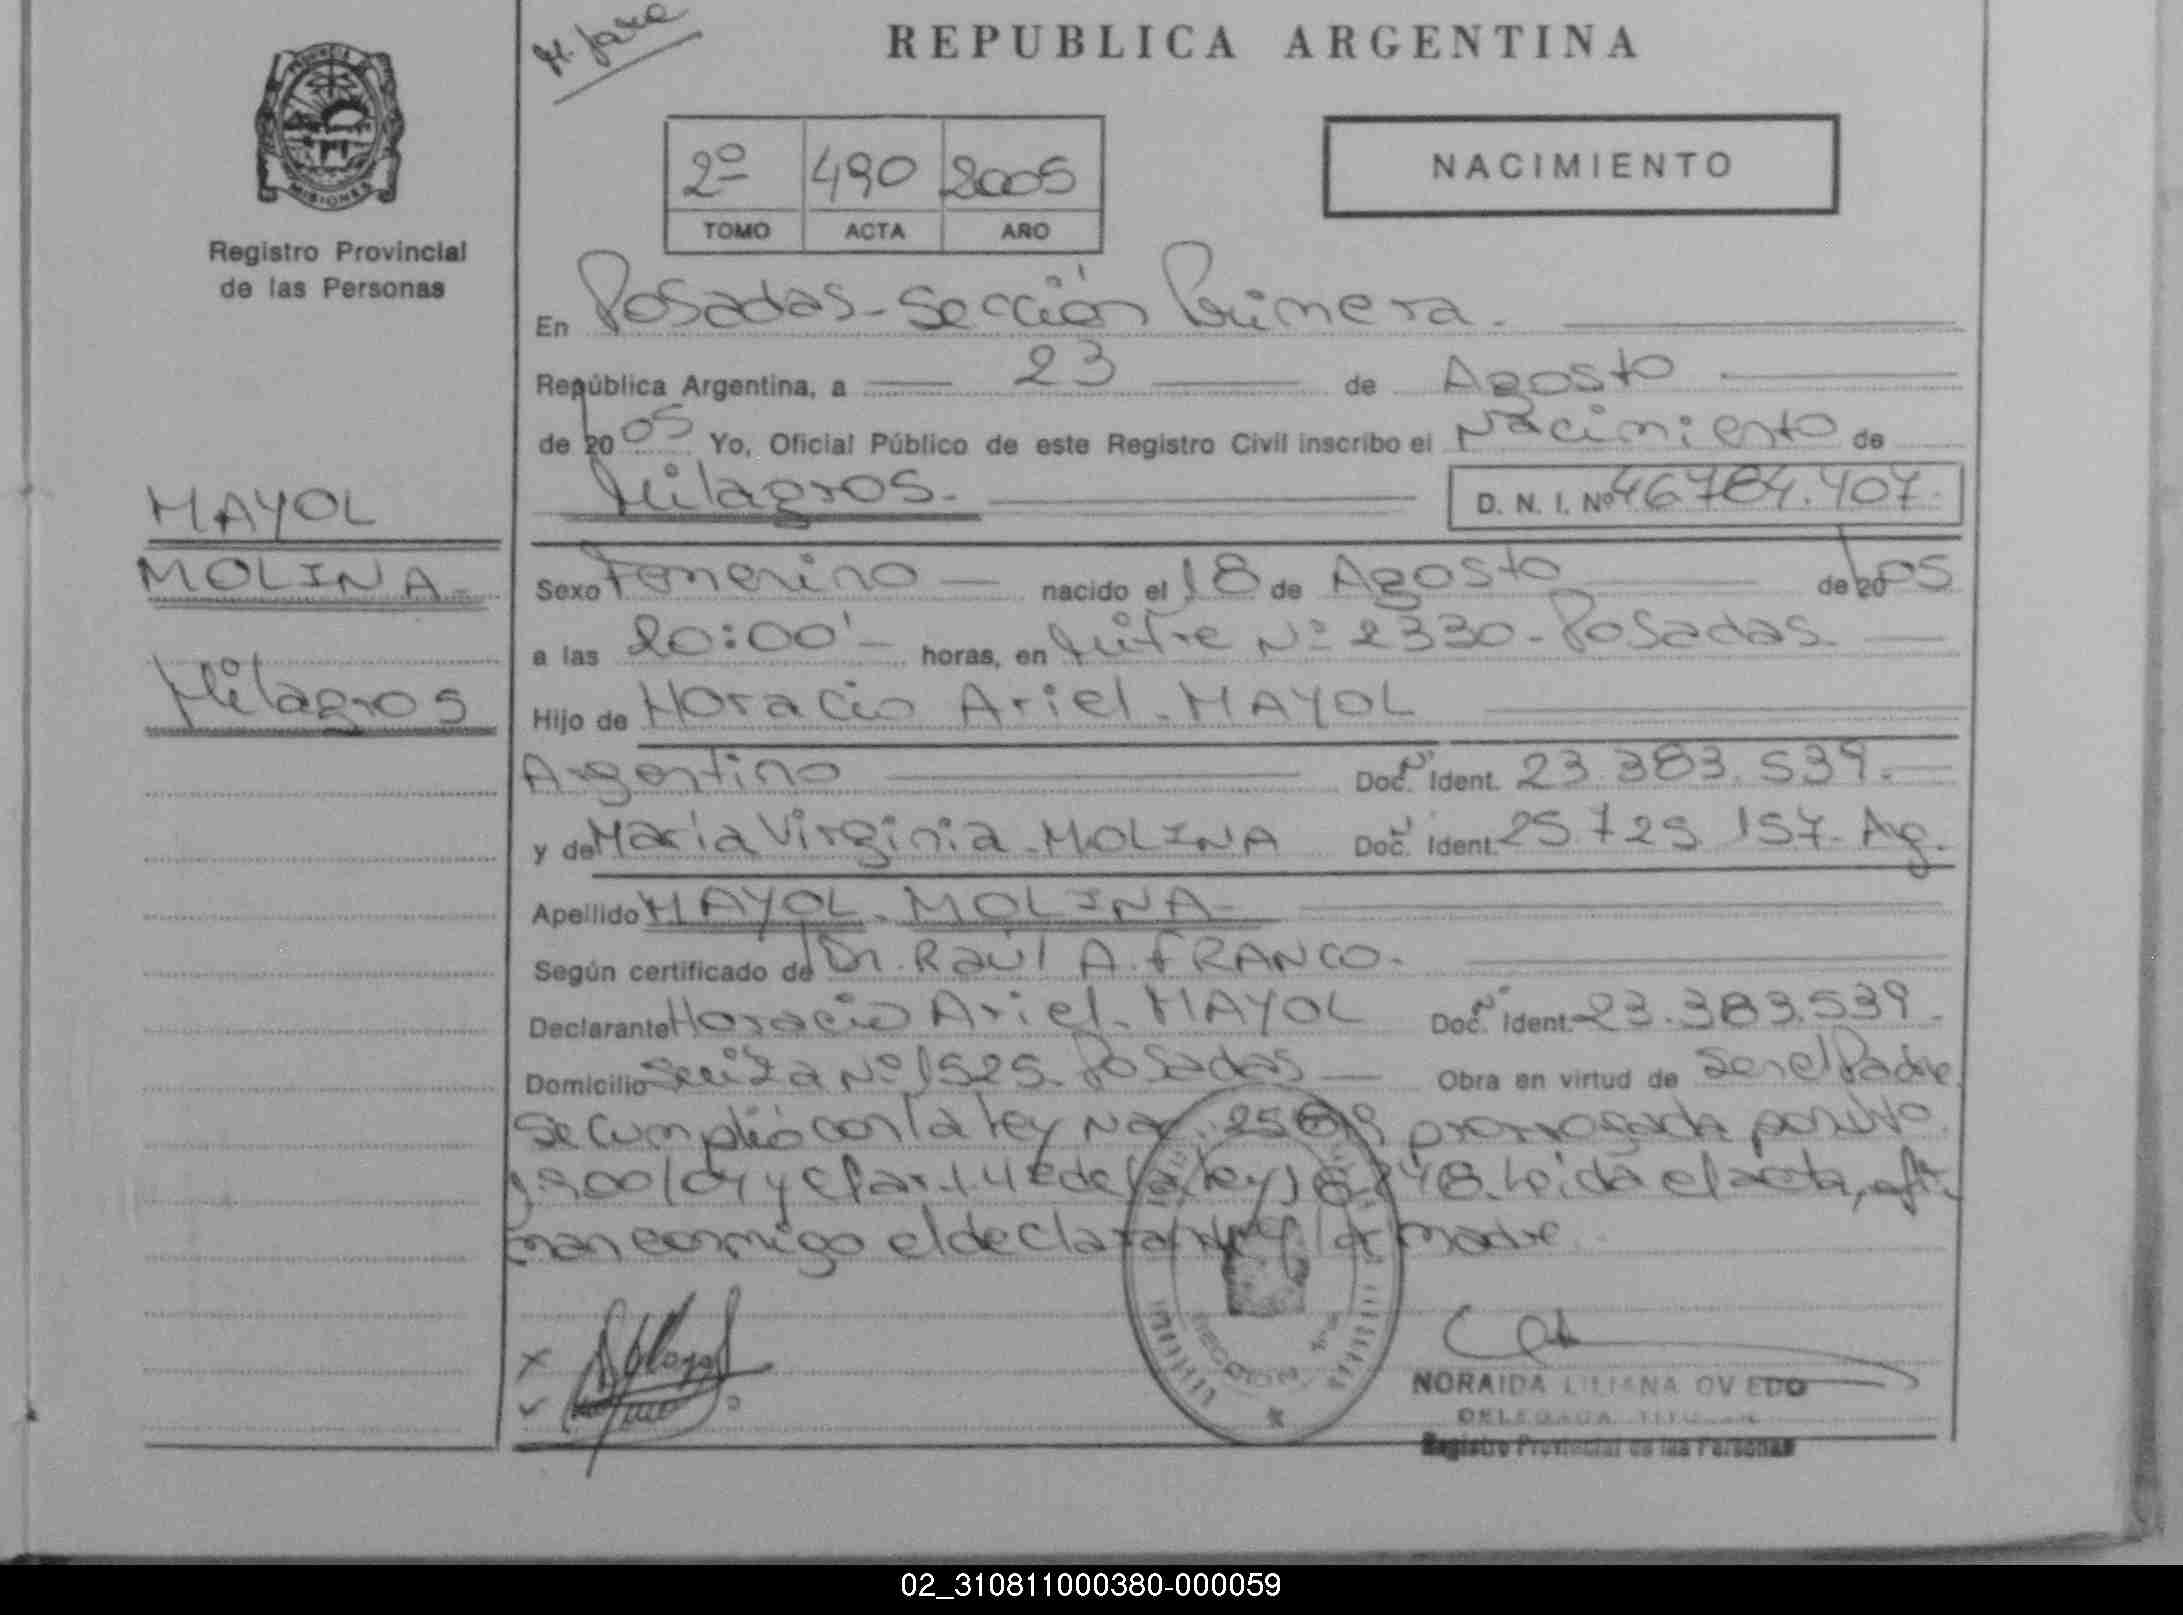 REPUBLICA ARGENTINA
PROVINCIA DE
MISIONES
Registro Provincial
de las Personas
2º 490 2005
TOMO ACTA AÑO
NACIMIENTO
En Posadas - Sección Primera.
República Argentina, a 23 de Agosto
de 2005 Yo, Oficial Público de este Registro Civil inscribo el Nacimiento de
Milagros. D. N. I. Nº 46.784.407.
MAYOL
MOLINA -
Milagros
Sexo Femenino nacido el 18 de Agosto de 2005
a las 20:00' horas, en Mitre Nº 2330 - Posadas.
Hijo de Horacio Ariel - MAYOL
Argentino Doc. Nº Ident. 23.383.539.
y de María Virginia - MOLINA Doc. Nº Ident. 25.725.157 - Ag.
Apellido MAYOL - MOLINA -
Según certificado de Dr. Raúl A. FRANCO.
Declarante Horacio Ariel - MAYOL Doc. Nº Ident. 23.383.539.
Domicilio Nº 1525 - Posadas Obra en virtud de ser el Padre
Se cumplió con la Ley Nac. prorrogada por
y el art. de la Ley 18.248. Leída el acta, fir-
man conmigo el declarante y la madre.
NORAIDA LILIANA OVIEDO
DELEGADA TITULAR
Registro Provincial de las Personas
02_310811000380-000059